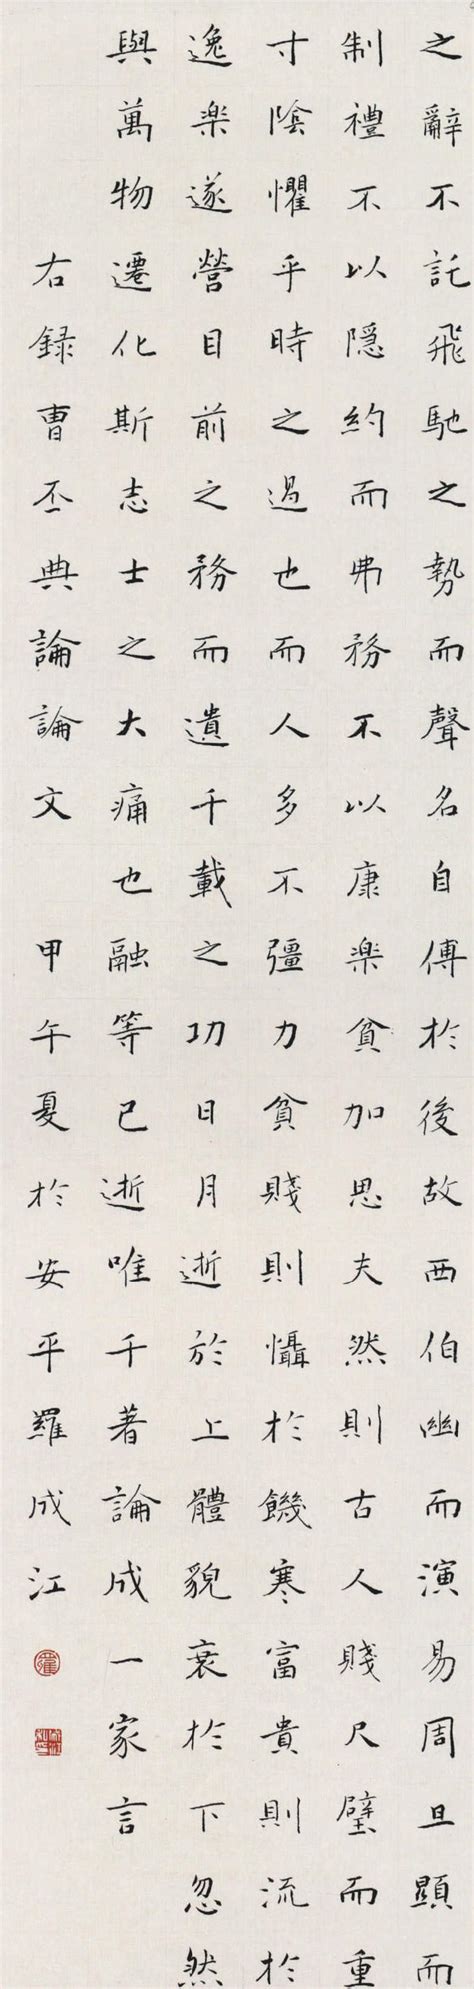 之辭不託飛馳之勢而聲名自傳於後故西伯幽而演易周旦顯而
制禮不以隠約而弗務不以康楽貧加思夫然則古人賤尺璧而重
寸陰懼乎時之過也而人多不彊力貧賤則懾於饑寒富貴則流於
逸楽遂營目前之務而遺千載之功日月逝於上體貌衰於下忽然
與萬物遷化斯志士之大痛也融等已逝唯干著論成一家言
右録曹丕典論論文 甲午夏於安平羅成江
羅